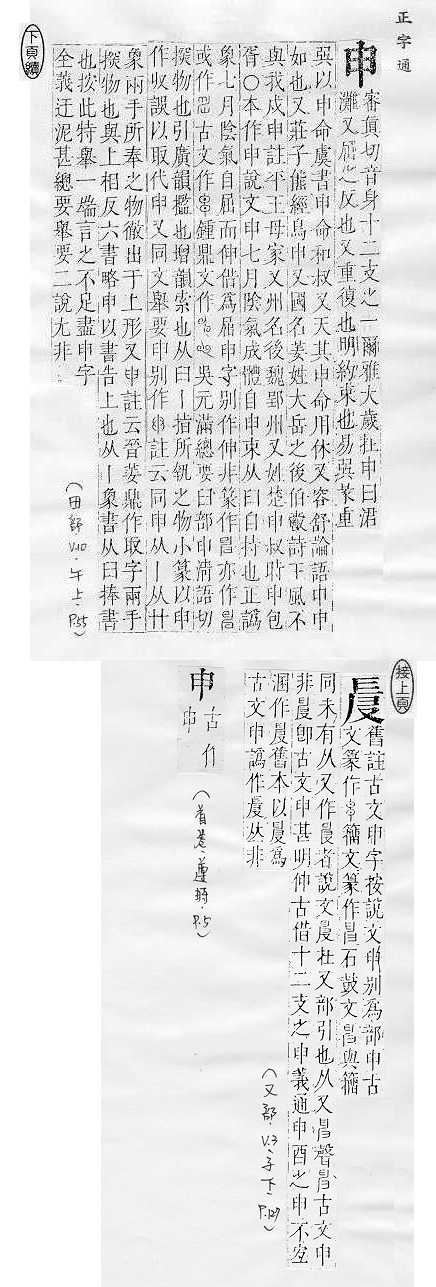 正字通
下頁續
申
審真切音身十二支之一爾雅大歲在申曰涒
灘又屈之反也又重復也明約束也易巽彖重
巽以申命虞書申命和叔又天其申命用休又容舒論語申申
如也又莊子熊經鳥申又國名姜姓大岳之後伯爵詩王風不
與我戍申註平王母家又州名後魏郢州又姓楚申叔時申包
胥○本作申說文申七月陰氣成體自申束从臼自持也正譌
象七月陰氣自屈而伸借為屈申字別作伸非篆作 亦作
或作 古文作 鍾鼎文作 吳元滿總要曰部申清語切
㨖物也引廣韻㯺也增韻索也从臼丨指所執之物小篆以申
作収誤以取代申又同文舉要申別作 註云同申从丨从廾
象兩手所奉之物微出于上形又申註云晉姜鼎作取字兩手
㨖物也與上相反六書略申以書告上也从丨象書从臼捧書
也按此特舉一端言之不足盡申字
全義迂泥甚總要舉要二說尤非
(田部.V.10.午上.P.55)
接上頁
舊註古文申字按說文申別為部申古
文篆作 籀文篆作 石鼓文 與籀
同未有从又作 者說文 在又部引也从又 聲 古文申
非 卽古文申甚明伸古借十二支之申義通申酉之申不宜
溷作 舊本以 為
古文申譌作 𠀤非
(又部.V.3.子下.P.129)
申 古作
(首卷.遵時.P.5)